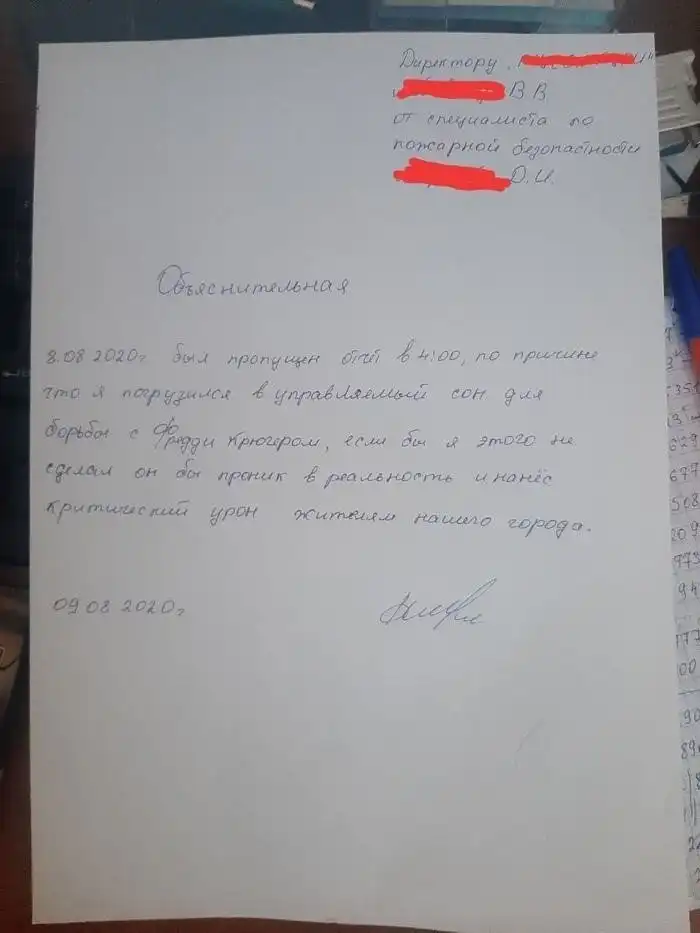 Директору
В.В.
от специалиста по
пожарной безопастности
О.И.
Объяснительная
8.08 2020г был пропущен отчёт в 4:00, по причине
что я погрузился в управляемый сон для
борьбы с Фредди Крюгером, если бы я этого не
сделал он бы проник в реальность и нанёс
критический урон жителям нашего города.
09.08 2020г